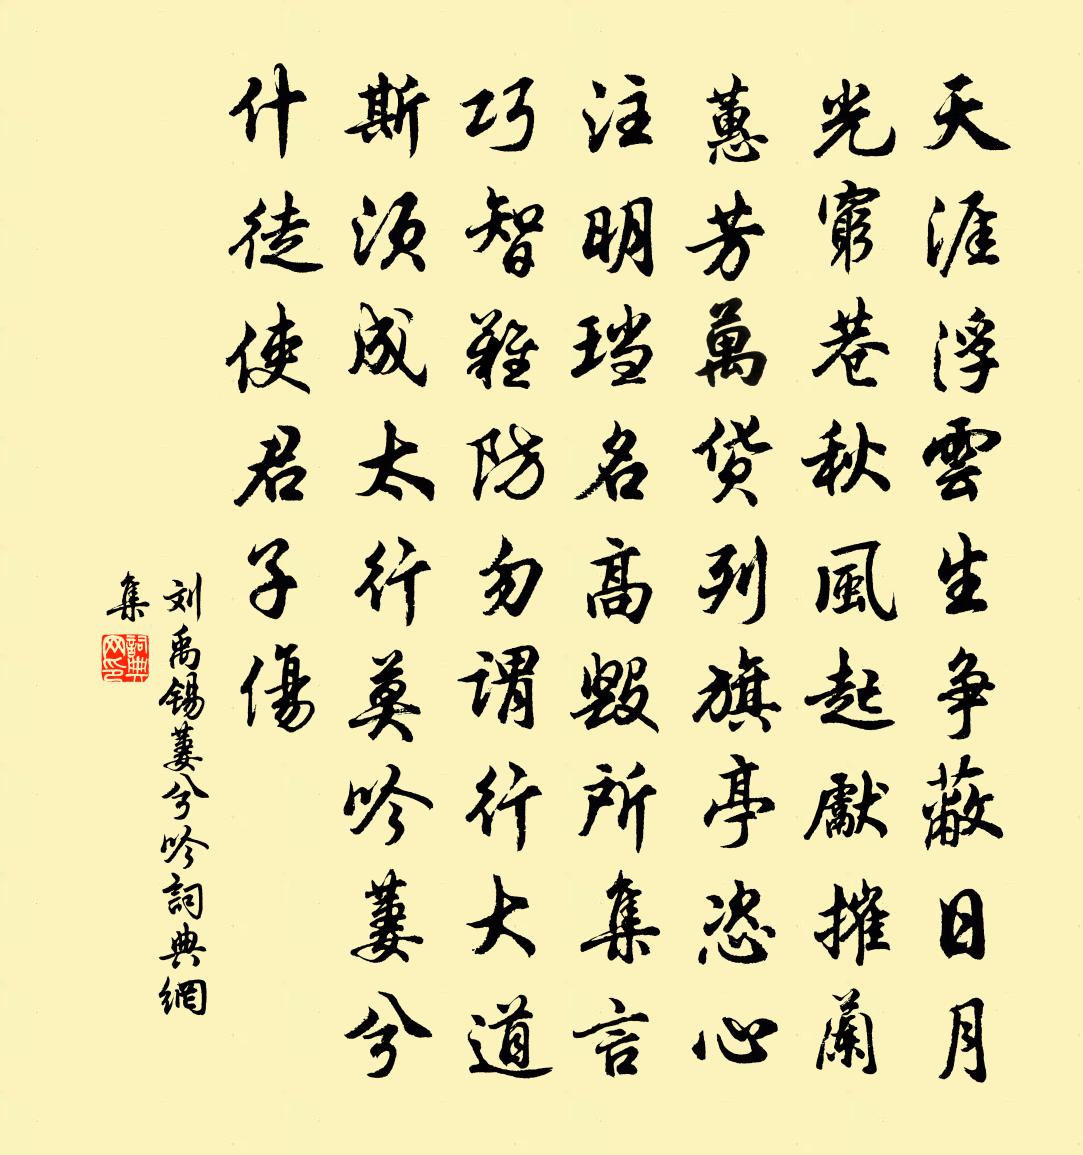 天涯浮雲生争蔽日月
光窮巷秋風起獻摧蘭
蕙芳萬货列旗亭恣心
注明珰名高毁所集言
巧智難防勿謂行大道
斯须成太行莫吟萋兮
什徒使君子傷
刘禹锡萋兮吟詞典網
集
詞典網印